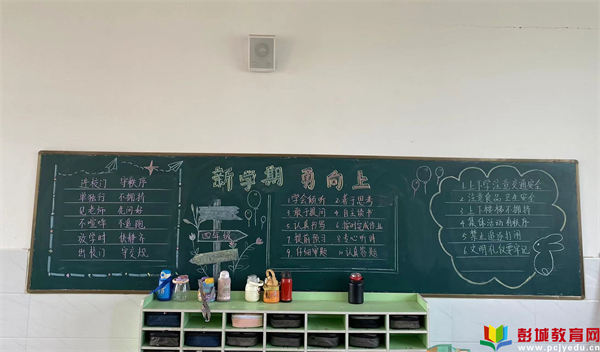 新学期 勇向上
进校门 守秩序
单独行 不拥挤
见老师 先问好
不喧哗 不追跑
放学时 快静齐
出校门 守交规
四年级
1.学会倾听 2.善于思考
3.敢于提问 4.自主读书
5.认真书写 6.按时完成作业
7.提前预习 8.专心听讲
9.仔细审题 10.认真答题
1.上下学注意交通安全
2.注意食品卫生安全
3.上下楼梯不拥挤
4.集体活动有秩序
5.禁止追逐打闹
6.文明礼仪要牢记
彭城教育网
www.pcjyedu.cn